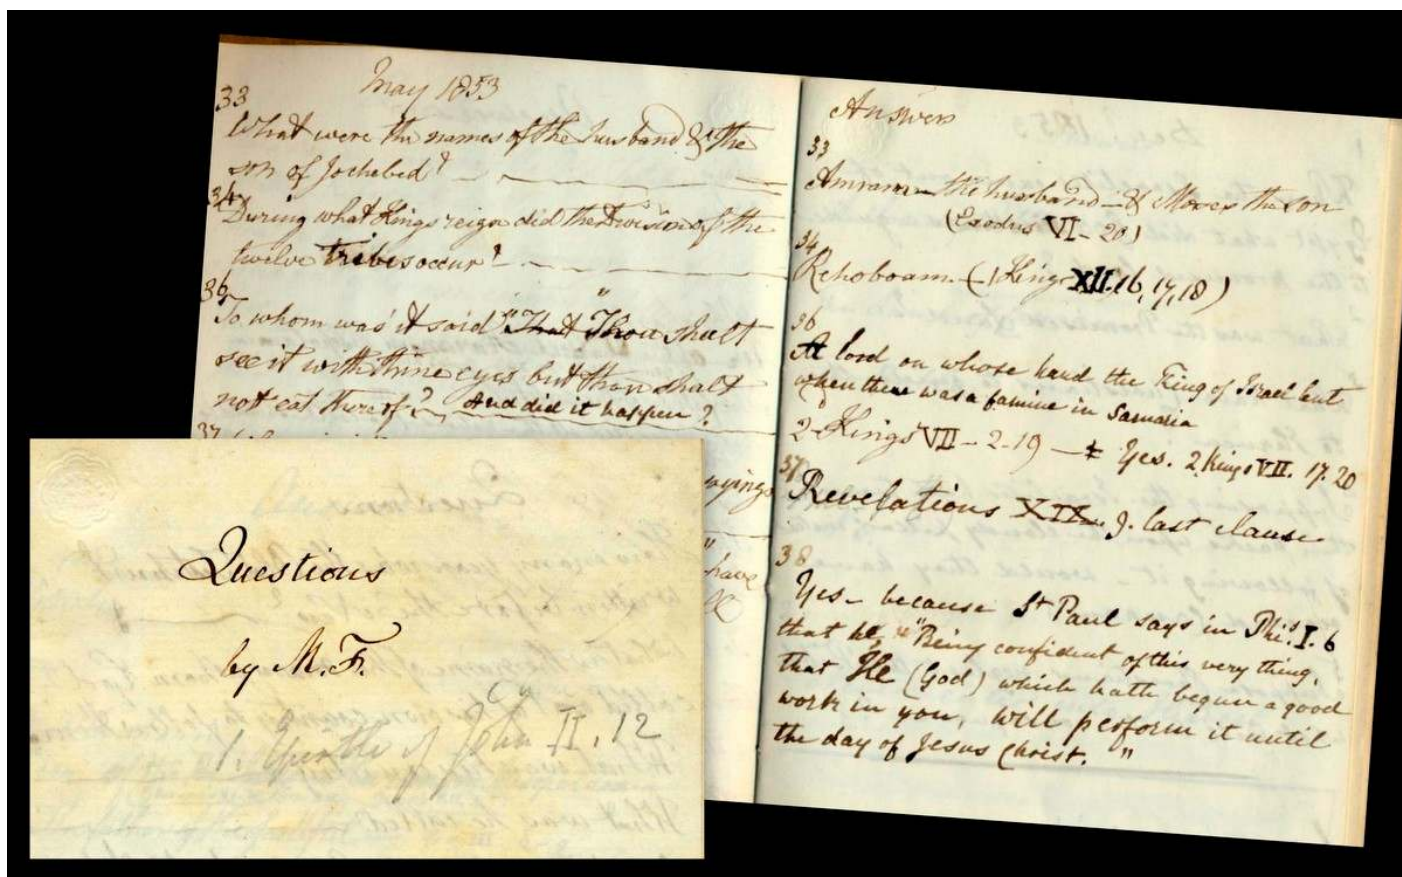 May 1853
33
What were the names of the husband & the
son of Jochebed?
34
During what Kings reign did the Division of the
twelve tribes occur?
36
To whom was it said "That "Thou shalt
see it with thine eyes but thou shalt
not eat thereof? And did it happen?
37
"have
Answers
33
Amram the husband & Moses the son
(Exodus VI - 20)
34
Rehoboam. (1 Kings XII. 16, 17, 18)
36
A lord on whose hand the King of Israel leant
when there was a famine in Samaria
2 Kings VII - 2 - 19 — Yes. 2 Kings VII. 17. 20
37
Revelations XIX. 9. last clause
38
Yes - because St Paul says in Phi. I. 6
that he, "Being confident of this very thing,
that He (God) which hath begun a good
work in you, will perform it until
the day of Jesus Christ."
Questions
by M. F.
1. Epistle of John II, 12